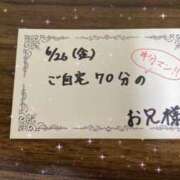 6/26(金)
ご自宅70分の
お兄様